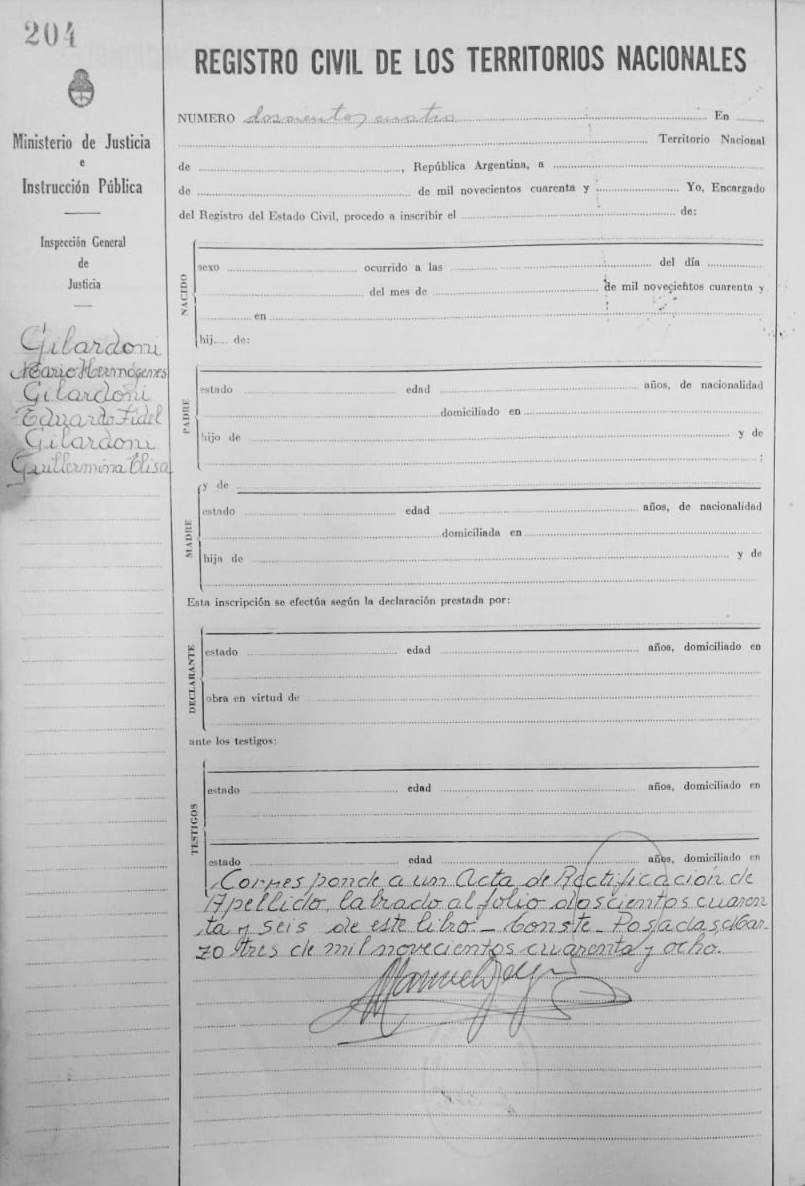 204
Ministerio de Justicia
e
Instrucción Pública
Inspección General
de
Justicia
Gilardoni
Mario Hermógenes
Gilardoni
Eduardo Fidel
Gilardoni
Guillermina Elisa
REGISTRO CIVIL DE LOS TERRITORIOS NACIONALES
NUMERO doscientos cuatro En
Territorio Nacional
de , República Argentina, a
de de mil novecientos cuarenta y Yo, Encargado
del Registro del Estado Civil, procedo a inscribir el de:
NACIDO
sexo ocurrido a las del día
del mes de de mil novecientos cuarenta y
en
hij.... de:
PADRE
estado edad años, de nacionalidad
domiciliado en
hijo de y de
:
MADRE
y de
estado edad años, de nacionalidad
domiciliada en
hija de y de
Esta inscripción se efectúa según la declaración prestada por:
DECLARANTE
estado edad años, domiciliado en
obra en virtud de
ante los testigos:
TESTIGOS
estado edad años, domiciliado en
estado edad años, domiciliado en
Corresponde a un Acta de Rectificación de
Apellido, labrado al folio doscientos cuaren
ta y seis de este libro_ Conste_ Posadas,
tres de mil novecientos cuarenta y ocho.